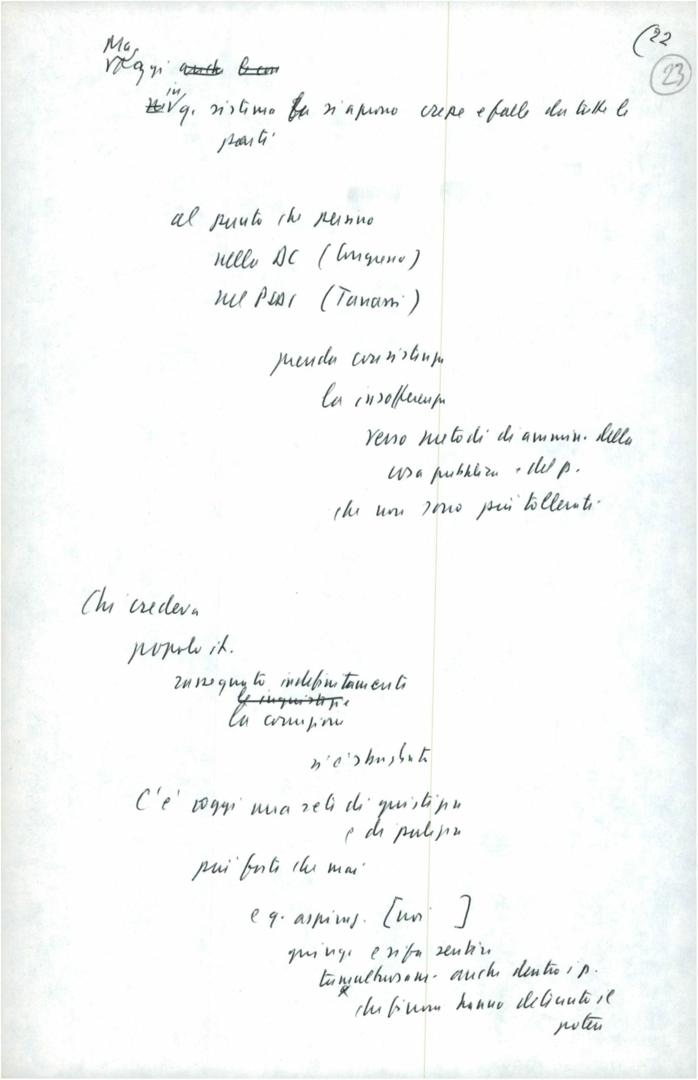 (22
23
Ma,
oggi anche le con
in q. sistema si aprono crepe e falle da tutte le
parti
al punto che persino
nella DC (Congresso)
nel PSDI (Tanassi)
prenda consistenza
la insofferenza
verso metodi di ammin. della
cosa pubblica e del p.
che non sono più tollerati
Chi credeva
popolo it.
rassegnato indefinitamente
le ingiustizie
la corruzione
si è sbagliato
C'è oggi una sete di giustizia
e di pulizia
più forte che mai
e q. aspiraz. [noi ]
giunge e si fa sentire
tumultuosam. anche dentro i p.
che finora hanno detenuto il
potere